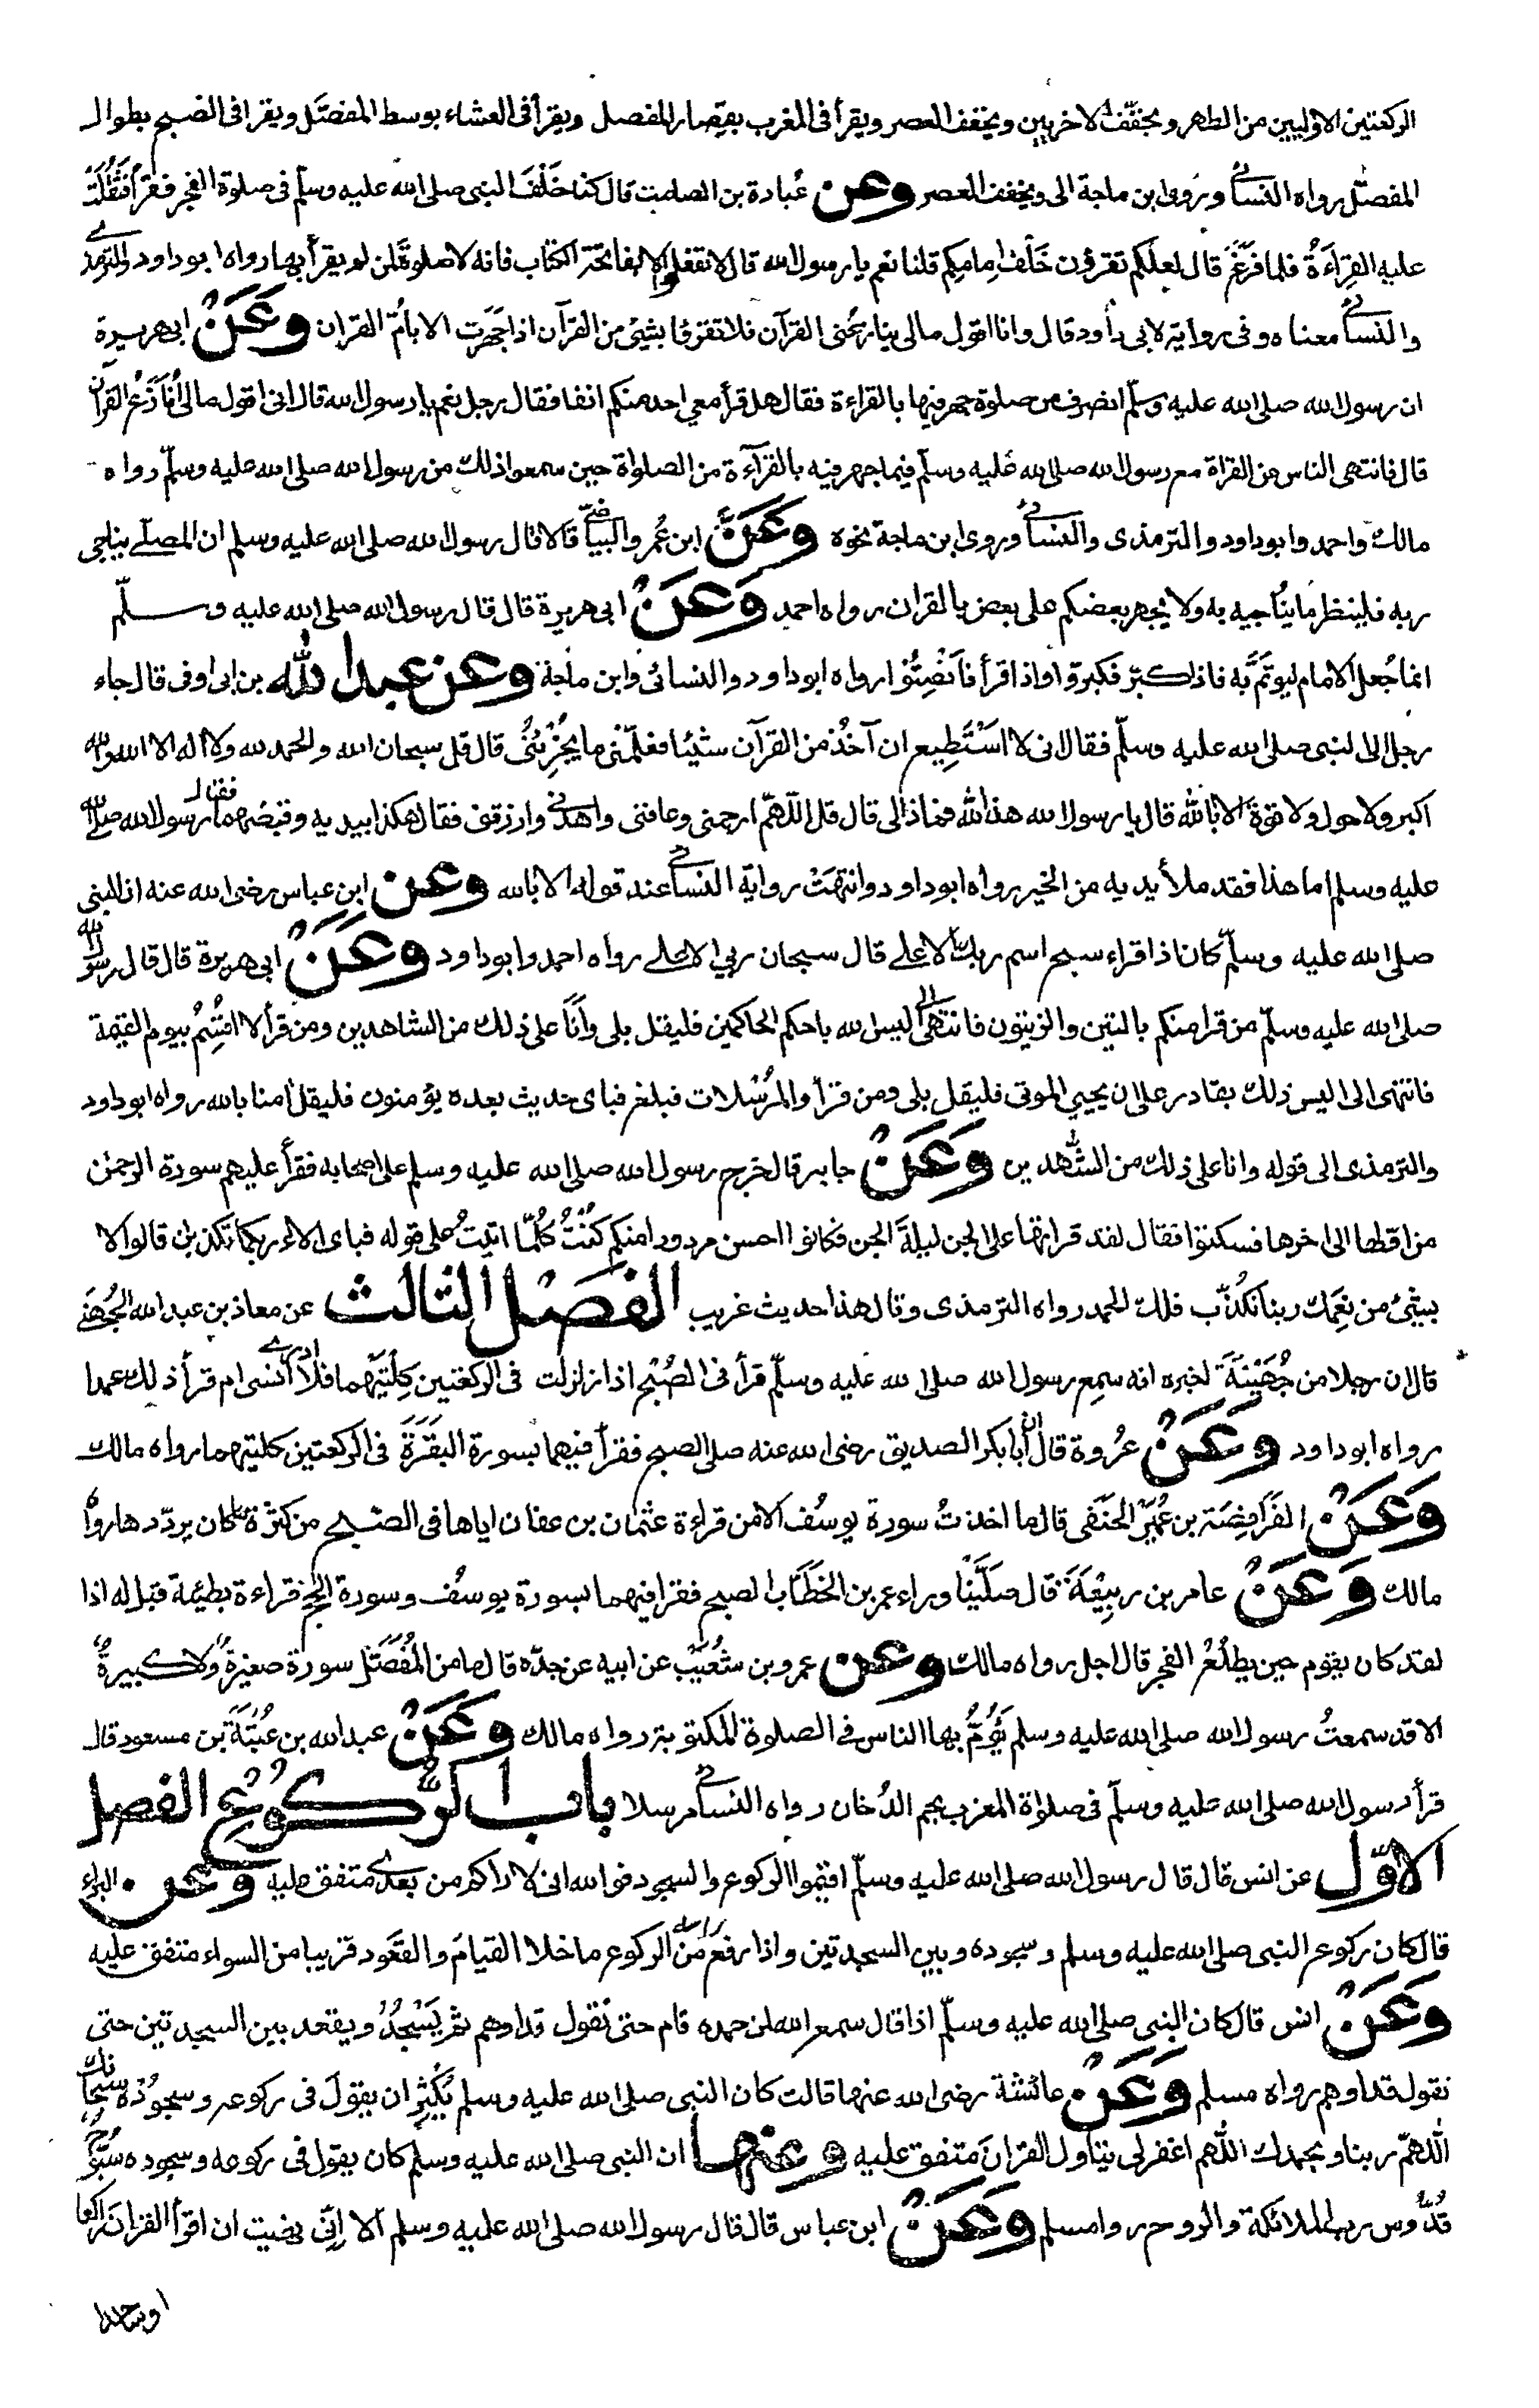 الركعتين الاوليين من الظهر ويخفّف الاخريين ويخفف العصر ويقرأ فى المغرب بقِصار المفصل ويقرأ فى العشاء بوسط المفصَّل ويقرا فى الصّبح بطوال
المفصَّل رواه النسائى وروى ابن ماجة الى ويخفف العصر وعن عُبادة بن الصامت قال كنا خَلْفَ النبى صلى الله عليه وسلّم فى صلوة الفجر فقرأ فثقُلَتْ
عليه القِرَاءَةُ فلما فرَغَ قال لعلّكم تقرؤن خَلْفَ اِمامِكم قلنا نعم يا رسول الله قال لا تفعلوا الا بفاتحة الكتاب فانه لا صلوةَ لمن لم يقرأ بها رواه ابو داود والترمذى
والنسائى معناه وفى رواية لابى داود قال وانا اقول مالى ينازعُنى القرآن فلا تقرؤا بشئ من القرآن اذا جَهَرت الا بامّ القران وعَنْ ابى هريرة
ان رسول الله صلى الله عليه وسلّم انصرف من صلوة جهر فيها بالقراءة فقال هل قرأ معى احد منكم انفا فقال رجل نعم يا رسول الله قال انى اقول مالى اُنَازَعُ القرآن
قال فانتهى الناس عن القراة مع رسول الله صلى الله عليه وسلّم فيما جهر فيه بالقرآءة من الصلواة حين سمعوا ذلك من رسول الله صلى الله عليه وسلّم رواه
مالك واحمد وابو داود والترمذى والنسائى وروى ابن ماجة نحوه وعَنْ ابن عُمر والبياضى قالا قال رسول الله صلى الله عليه وسلم ان المصلّے يناجى
ربه فلينظر ما يناجيه به ولا يجهر بعضكم على بعض بالقران رواه احمد وعَنْ ابى هريرة قال قال رسول الله صلى الله عليه وسلّم
انما جُعل الامام ليوتَمَّ به فاذا كبّر فكبروا واذا قرأ فاَنْصِتُوْا رواه ابو داود والنسائى وابن ماجة وعن عبد الله بن ابى اوفى قال جاء
رجل الى النبى صلى الله عليه وسلّم فقال انى لا اَسْتَطِيع ان آخُذَ من القرآن شيئا فعلّمنى ما يُجْزِئُنى قال قل سبحان الله والحمد لله ولا اله الا الله والله
اكبر ولا حول ولا قوة الا بالله قال يا رسول الله هذا لله فماذا لى قال قل اللّهمّ ارحمنى وعافنى واهدنى وارزقنى فقال هكذا بيديه وقبضهما فقال رسول الله صلى الله
عليه وسلم اما هذا فقد ملأ يديه من الخير رواه ابو داود وانتهَتْ رواية النسائى عند قوله الا بالله وعن ابن عباس رضى الله عنه ان النبى
صلى الله عليه وسلّم كان اذا قراء سبح اسم ربك الاعلى قال سبحان ربي الاعلے رواه احمد وابو داود وعَنْ ابى هريرة قال قال رسول الله
صلى الله عليه وسلّم من قرا منكم بالتين والزيتون فانتهى الى اليس الله باحكم الحاكمين فليقل بلى واَنَا على ذلك من الشاهدين ومن قرأ لا اقْسِمُ بيوم القيمة
فانتهى الى اليس ذلك بقادر على ان يحيي الموتى فليقل بلى ومن قرأ والمرُسَلات فبلغ فباى حديث بعده يؤمنون فليقل اٰمنا بالله رواه ابو داود
والترمذى الى قوله وانا على ذلك من الشٰهدين وعَنْ جابر قال خرج رسول الله صلى الله عليه وسلم على اصحابه فقرأ عليهم سورة الرحمٰن
من اوّلها الى اخرها فسكتوا فقال لقد قراتها على الجن ليلةَ الجن فكانوا احسن مردودا منكم كُنْتُ كُلَّمَا اتيتُ على قوله فباى الاء ربكما تكذبان قالوا لا
بشئ من نِعَمك ربنا نكذّب فلك الحمد رواه الترمذى وقال هذا حديث غريب الفَصْل الثالث عن معاذ بن عبد الله الجُهَنى
قال ان رجلا من جُهَيْنَةَ اخبره انه سمع رسول الله صلى الله عليه وسلّم قرأ فى الصُبْح اذا زلزلت فى الركعتين كِلْتَيْهما فلا ادرے أنسى ام قرأ ذلك عمدا
رواه ابو داود وعَنْ عُروة قال ان أبا بكر الصديق رضى الله عنه صلى الصبح فقرأ فيهما بسورة البقَرَةَ فى الركعتين كلتيهما رواه مالك
وعَنْ الفَرَافِصَة بن عُمَيْر الحَنَفى قال ما اخذتُ سورة يوسُف الا من قراءة عثمان بن عفان اياها فى الصّبح من كثرة ما كان يردّدها رواه
مالك وعَنْ عامر بن ربِيْعَةَ قال صَلَّيْنا وراء عمر بن الخَطَّاب الصبح فقرا فيهما بسورة يوسُف وسورة الحج قراءة بطيئة قيل له اذا
لقد كان يقوم حين يطلُعُ الفجر قال اجل رواه مالك وعن عمرو بن شُعَيْب عن ابيه عن جدّه قال ما من المُفَصَّل سورة صغيرةٌ ولا كبيرةٌ
الا قد سمعتُ رسول الله صلى الله عليه وسلم يَؤُمُّ بها الناس فى الصلوة المكتوبة رواه مالك وعَنْ عبد الله بن عُتبَةَ بن مسعود قال
قرأ رسول الله صلى الله عليه وسلّم فى صلواة المغرب بحم الدُخان رواه النسائى مرسلا باب الرّكوع الفصل
الاوّل عن انس قال قال رسول الله صلى الله عليه وسلّم اقيموا الركوع والسجود فوالله انى لاراكم من بعدے متفق عليه وعن البراء
قال كان ركوع النبى صلى الله عليه وسلم وسجوده وبين السجدتين واذا رفع راسه من الركوع ما خلا القيامَ والقعود قريبا من السواء متفق عليه
وعَنْ انس قال كان النبى صلى الله عليه وسلّم اذا قال سمع الله لمن حمده قام حتى نقول قد اوهم ثم يَسْجُدُ ويقعد بين السجدتين حتى
نقول قد اوهم رواه مسلم وعَنْ عائشة رضى الله عنها قالت كان النبى صلى الله عليه وسلم يُكْثِر ان يقولَ فى ركوعه وسجوده سبحانك
اللهمّ ربنا وبحمدك اللّهم اغفر لى يتاول القرانَ متفق عليه وعنها ان النبى صلى الله عليه وسلم كان يقول فى ركوعه وسجوده سُبّوحٌ
قُدّوس رب الملائكة والروح رواه مسلم وعَنْ ابن عباس قال قال رسول الله صلى الله عليه وسلم اَلا اِنّى نهيت ان اقرأ القران راكعا
او ساجدا